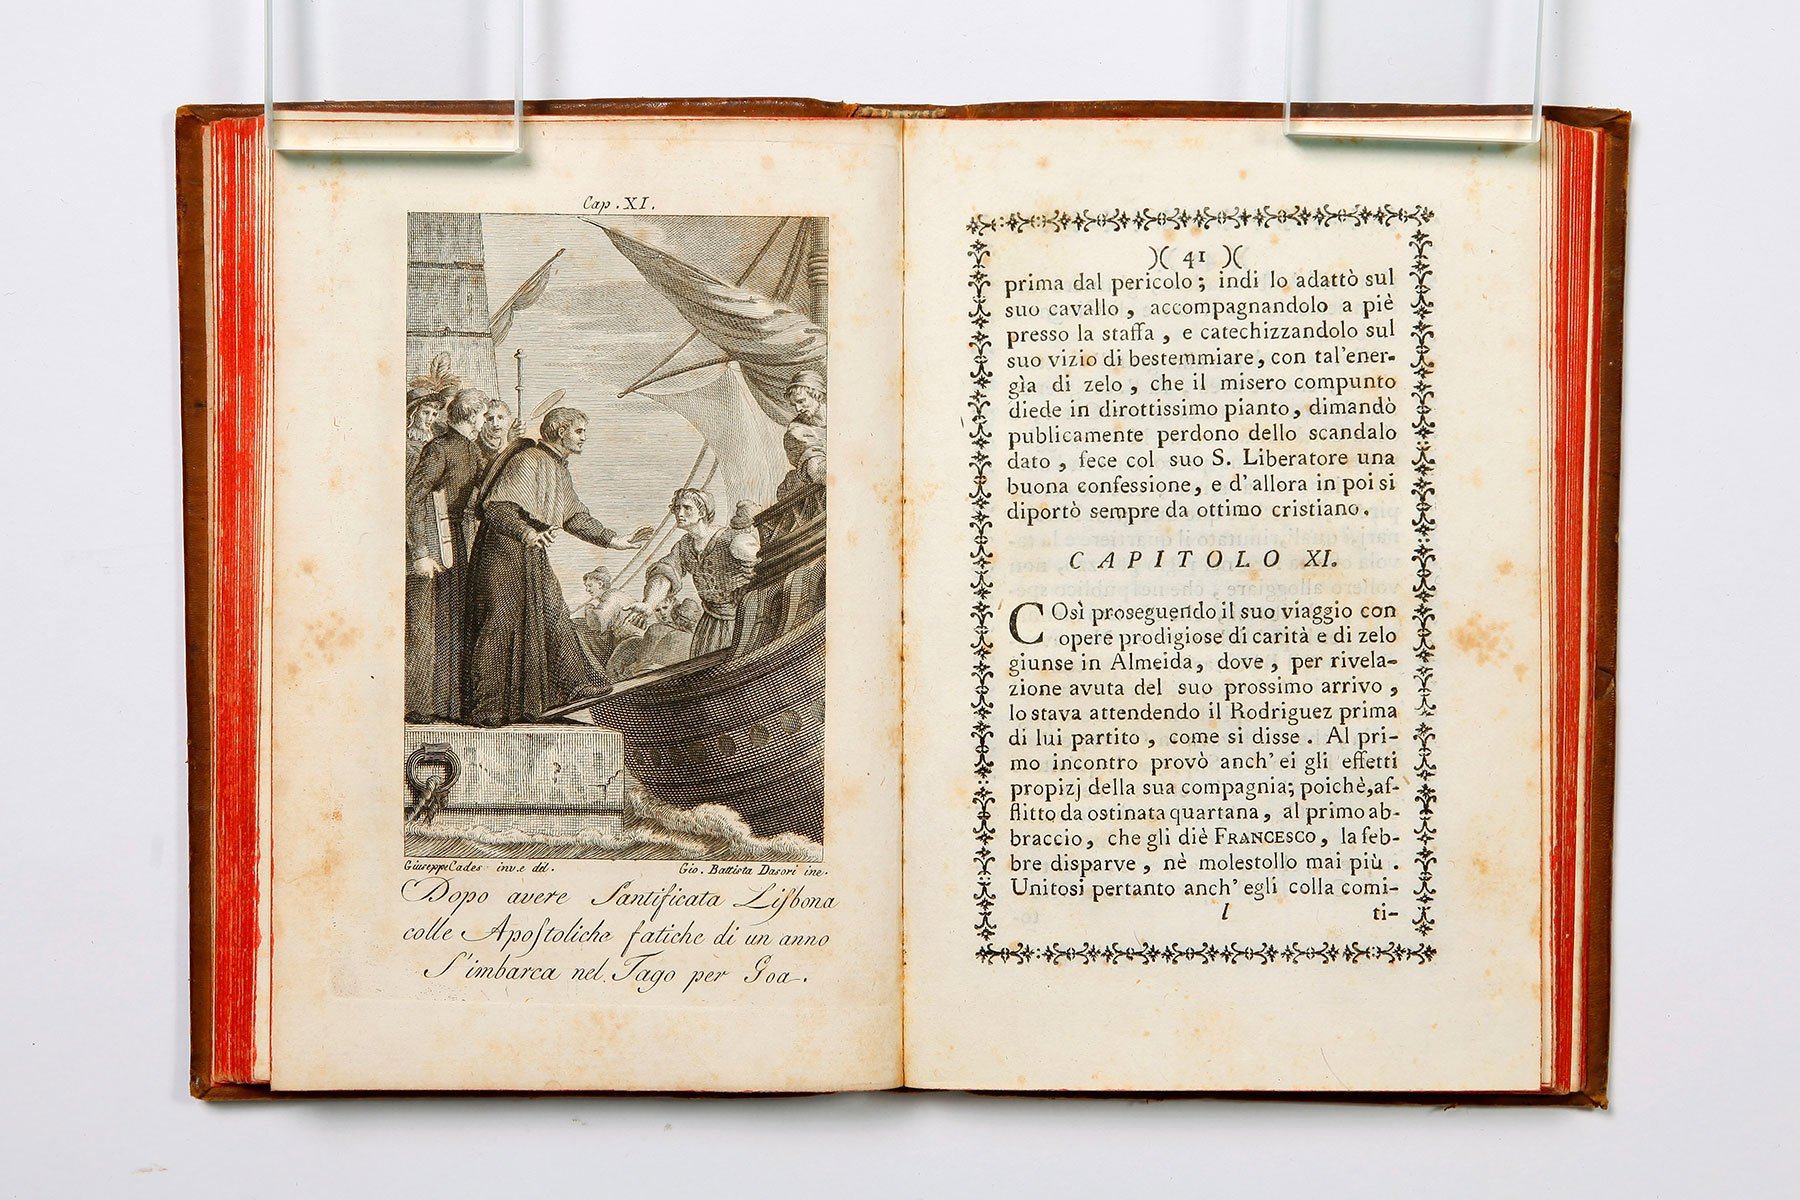 Cap. XI.
Giuseppe Cades inv. e del. Gio. Battista Dasori inc.
Dopo avere Santificata Lisbona
colle Apostoliche fatiche di un anno
S'imbarca nel Tago per Goa.
)( 41 )(
prima dal pericolo; indi lo adattò sul
suo cavallo, accompagnandolo a piè
presso la staffa, e catechizzandolo sul
suo vizio di bestemmiare, con tal'ener-
gìa di zelo, che il misero compunto
diede in dirottissimo pianto, dimandò
publicamente perdono dello scandalo
dato, fece col suo S. Liberatore una
buona confessione, e d'allora in poi si
diportò sempre da ottimo cristiano.
CAPITOLO XI.
COsì proseguendo il suo viaggio con
opere prodigiose di carità e di zelo
giunse in Almeida, dove, per rivela-
zione avuta del suo prossimo arrivo,
lo stava attendendo il Rodriguez prima
di lui partito, come si disse. Al pri-
mo incontro provò anch'ei gli effetti
propizj della sua compagnia; poichè, af-
flitto da ostinata quartana, al primo ab-
braccio, che gli diè FRANCESCO, la feb-
bre disparve, nè molestollo mai più.
Unitosi pertanto anch'egli colla comi-
l ti-